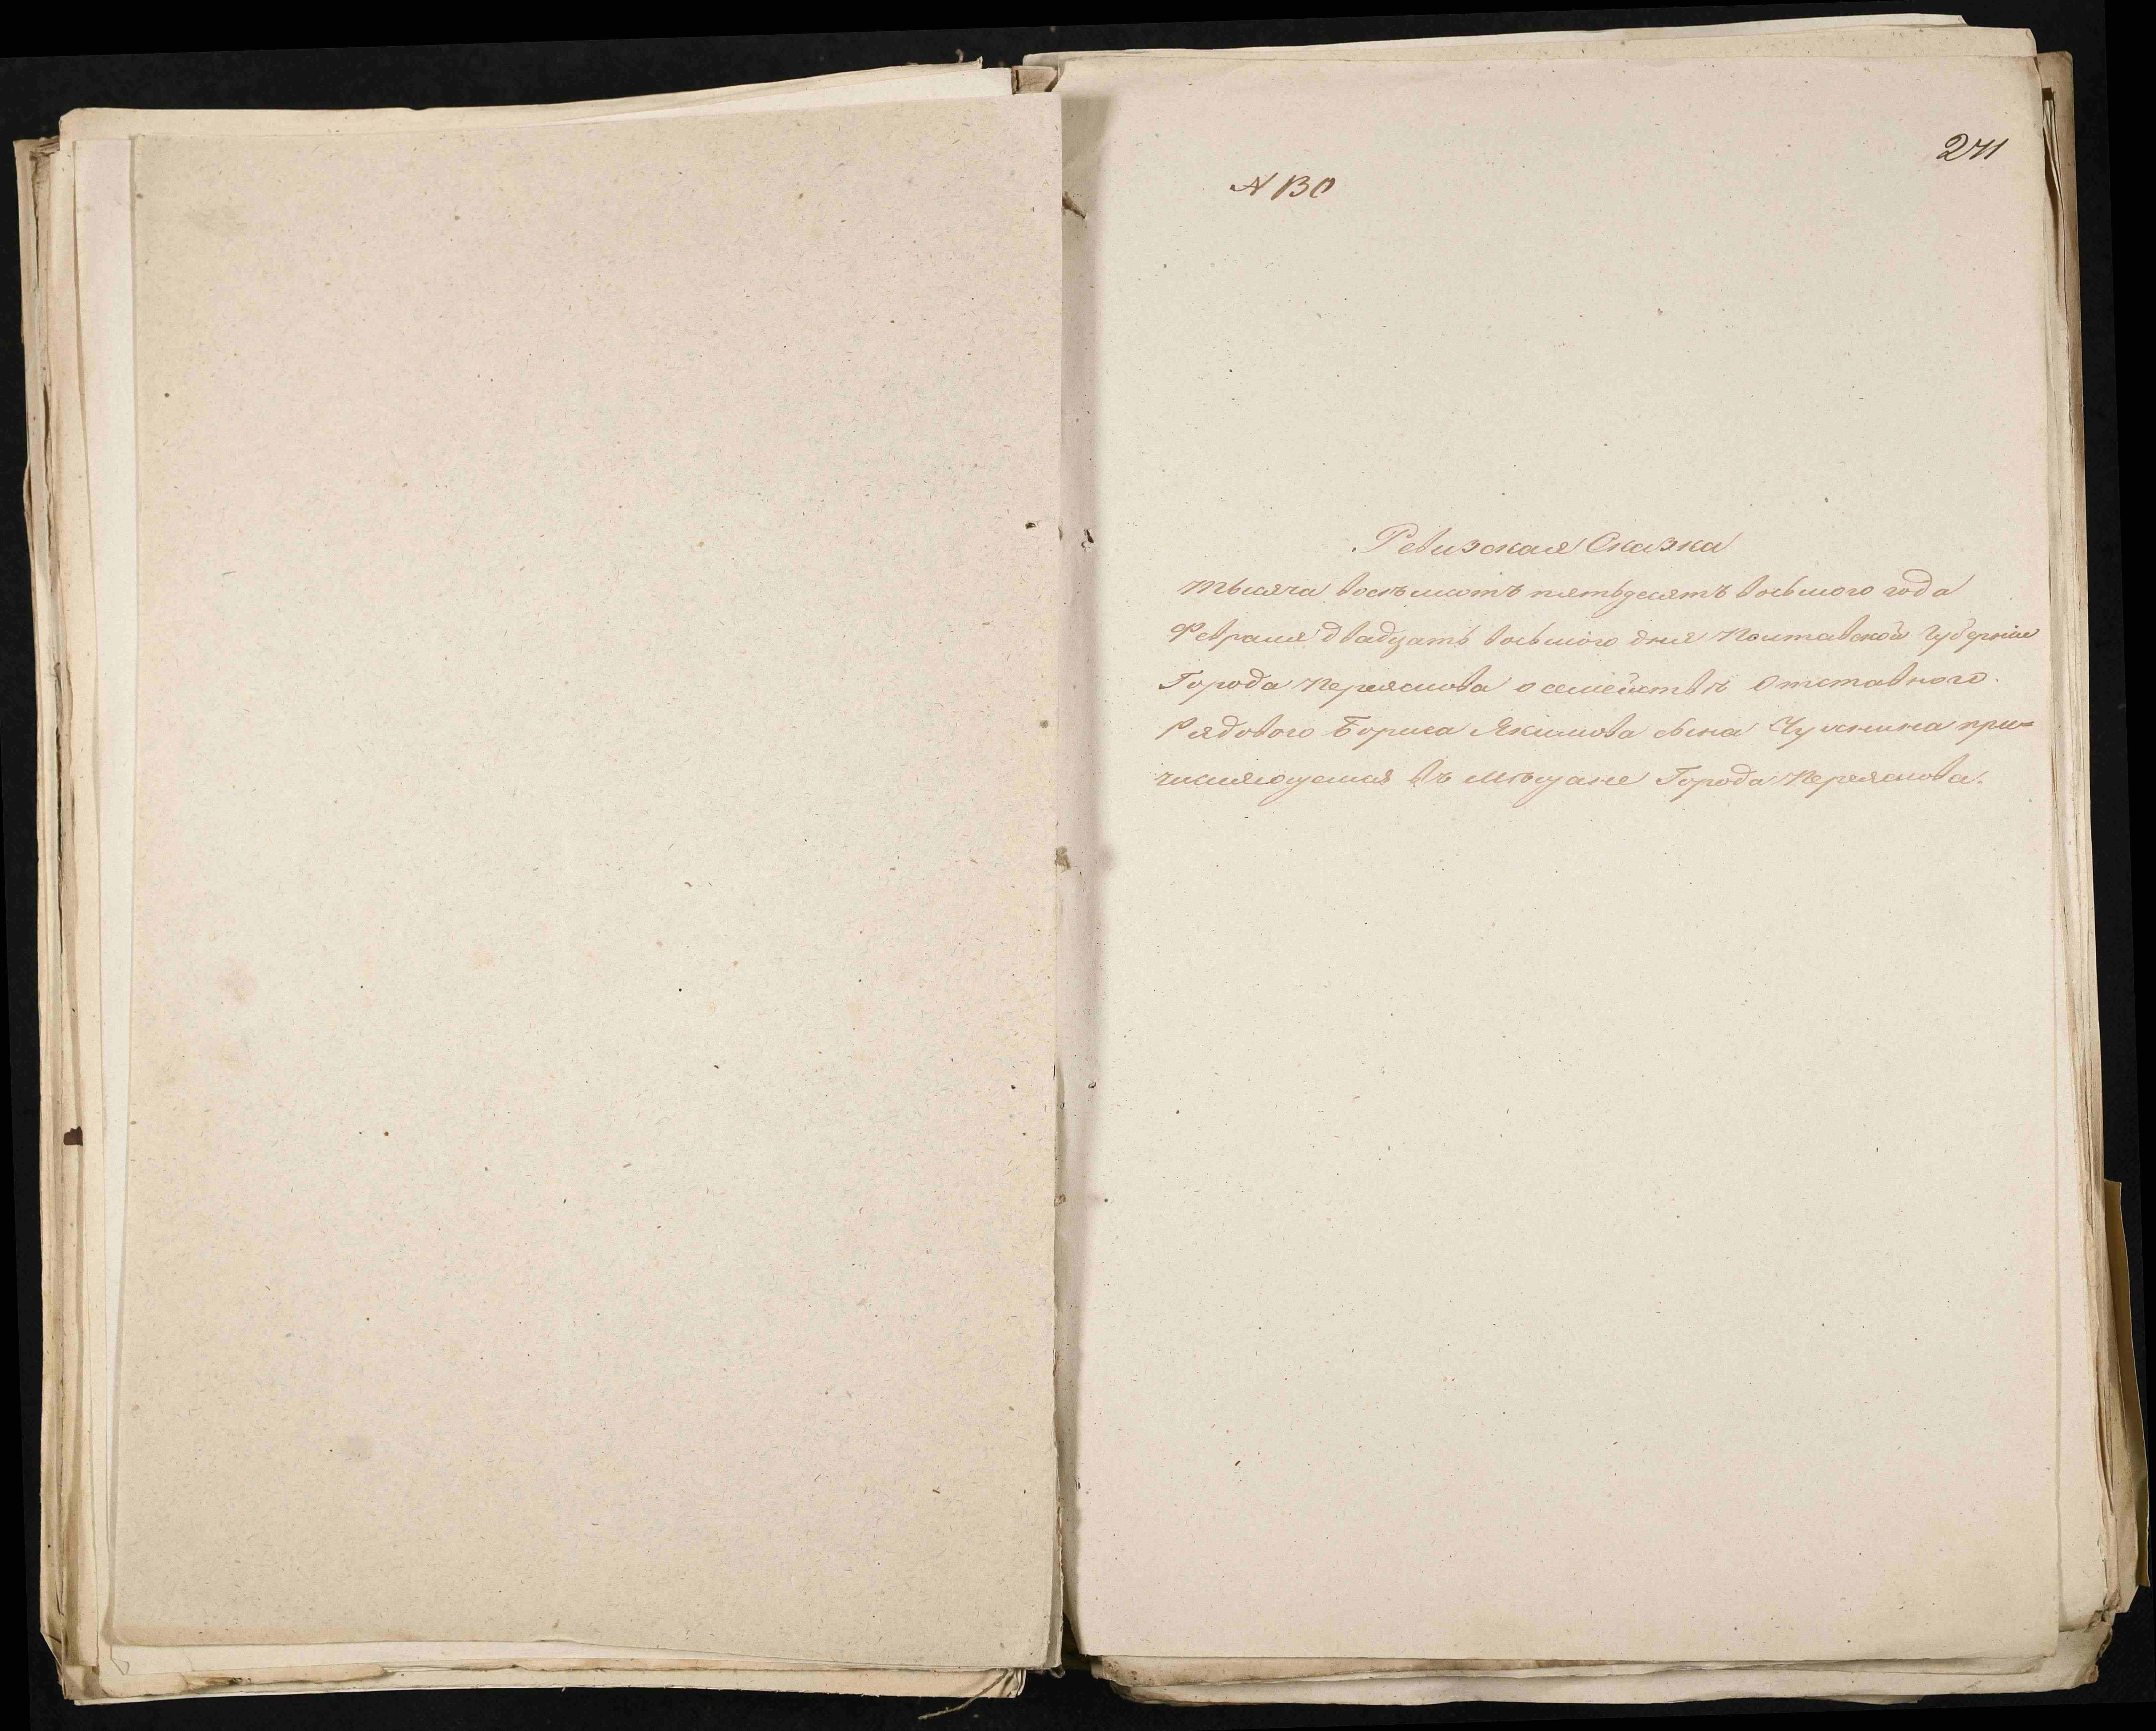 271
№ 130
Ревизская Сказка
тысяча восѣмьсотъ пятьдесятъ восьмого года
Февраля двадцать восьмого дня Полтавской Губерніи
Города Переяслова о семействѣ Отставного
Рядового Бориса Якимова сына при=
числяющемся въ мѣщане Города Переяслова.